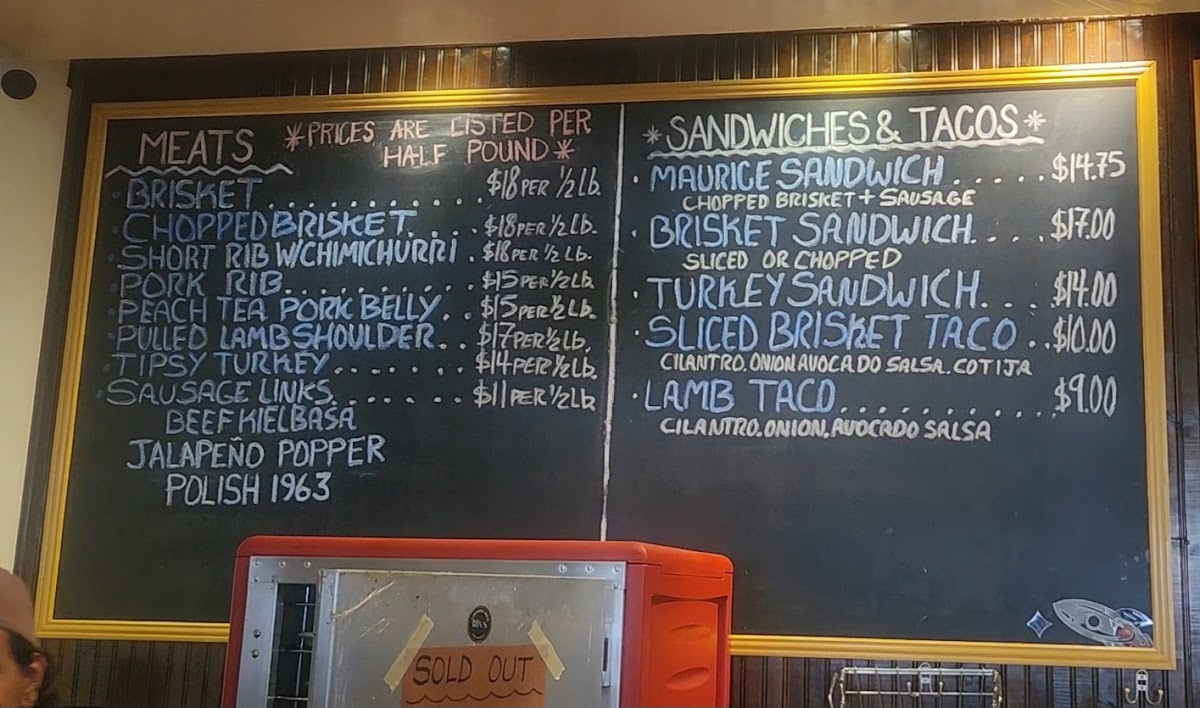 MEATS
*PRICES ARE LISTED PER
HALF POUND*
· BRISKET............ $18 PER ½ Lb.
· CHOPPED BRISKET.... $18 PER ½ Lb.
· SHORT RIB W/CHIMICHURRI . $18 PER ½ Lb.
· PORK RIB.......... $15 PER ½ Lb.
· PEACH TEA PORK BELLY.. $15 PER ½ Lb.
· PULLED LAMB SHOULDER.. $17 PER ½ Lb.
· TIPSY TURKEY....... $14 PER ½ Lb.
· SAUSAGE LINKS....... $11 PER ½ Lb
BEEF KIELBASA
JALAPEÑO POPPER
POLISH 1963
*SANDWICHES & TACOS*
· MAURICE SANDWICH..... $14.75
CHOPPED BRISKET + SAUSAGE
· BRISKET SANDWICH.... $17.00
SLICED OR CHOPPED
· TURKEY SANDWICH... $14.00
· SLICED BRISKET TACO.. $10.00
CILANTRO, ONION, AVOCADO SALSA, COTIJA
· LAMB TACO.......... $9.00
CILANTRO, ONION, AVOCADO SALSA
SOLD OUT